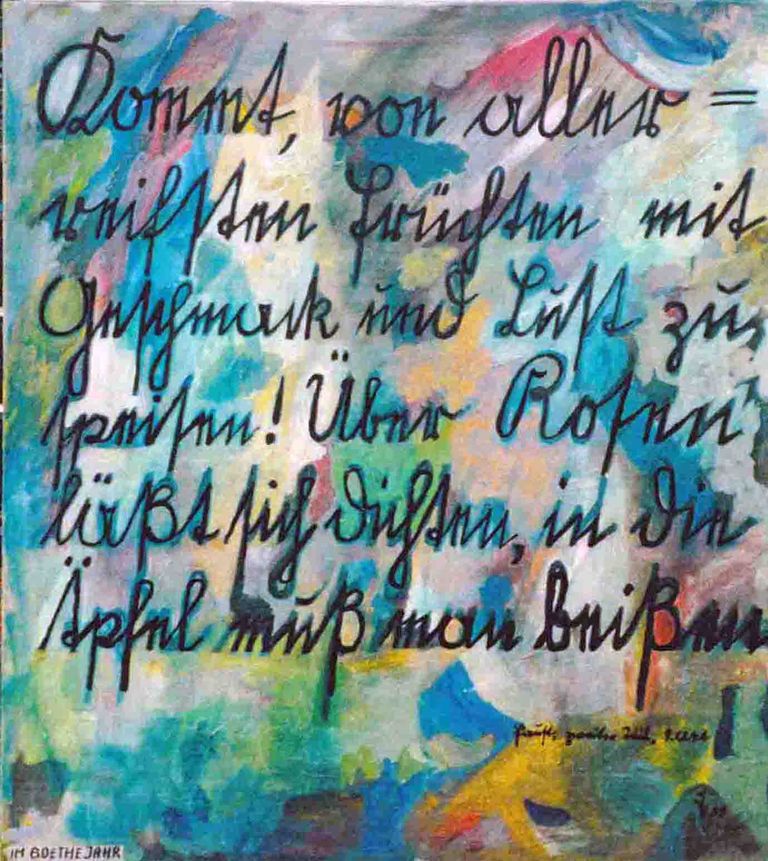 Kommt, von aller=
reifsten Früchten mit
Geschmack und Lust zu
speisen! Über Rosen
läßt sich dichten, in die
Äpfel muß man beißen
Faust, zweiter Teil,
IM GOETHEJAHR